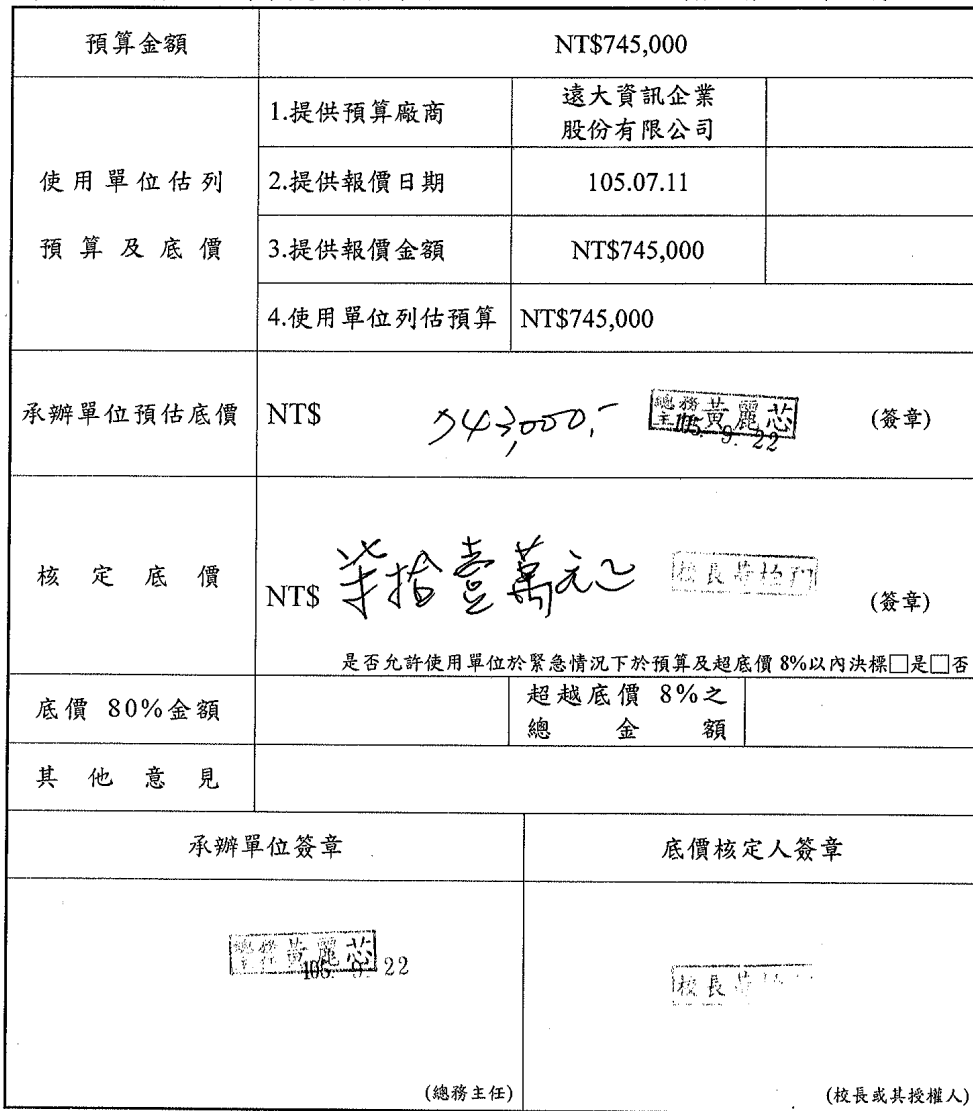 預算金額
NT$745,000
使用單位估列
預算及底價
1.提供預算廠商
遠大資訊企業
股份有限公司
2.提供報價日期
105.07.11
3.提供報價金額
NT$745,000
4.使用單位列估預算
NT$745,000
承辦單位預估底價
NT$
743,000.-
總務主任
黃麗芯
105. 9. 22
(簽章)
核定底價
NT$
柒拾壹萬元
校長
(簽章)
是否允許使用單位於緊急情況下於預算及超底價 8%以內決標□是□否
底價 80%金額
超越底價 8%之
總金額
其他意見
承辦單位簽章
底價核定人簽章
總務主任
黃麗芯
105. 9. 22
校長
(總務主任)
(校長或其授權人)